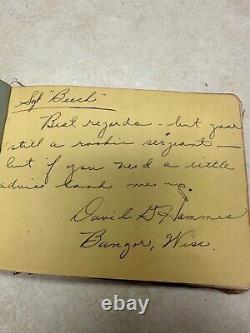 Sgt "Beech"
Best regards - but your
still a rookie sergeant -
but if you need a little
advice look me up.
David G. Hammes
Bangor, Wisc.